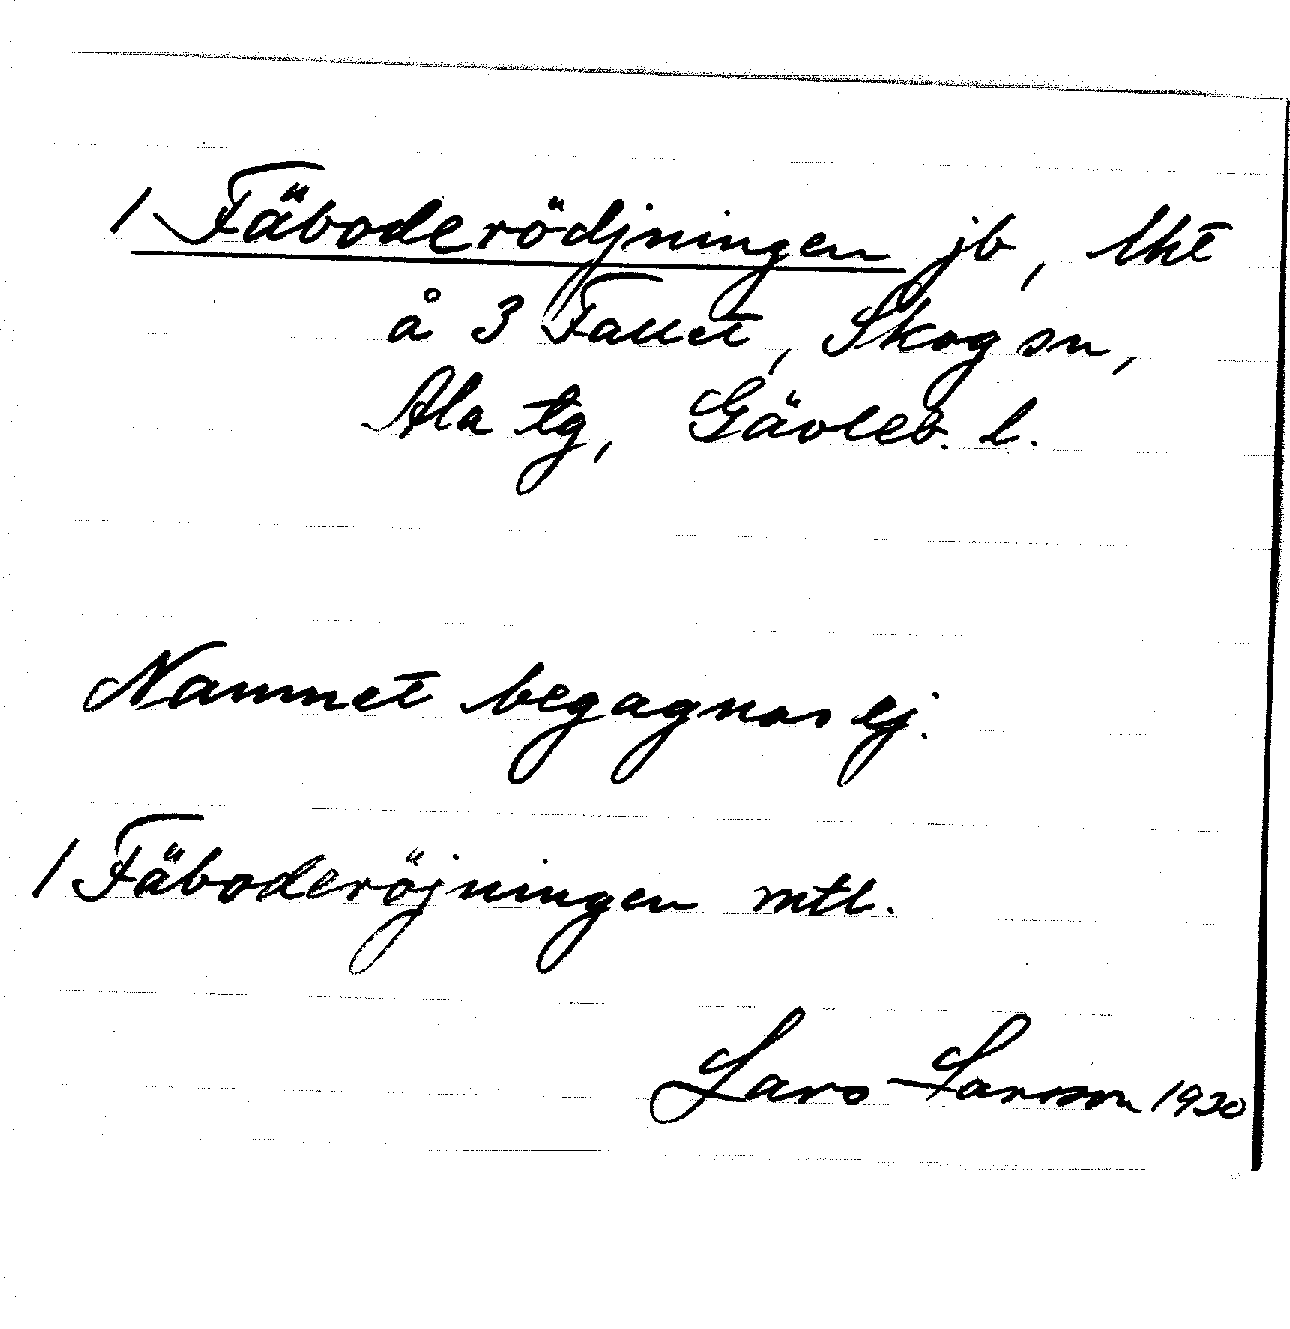 1 Fäboderödjningen jb, lht
å 3 Fallet, Skog sn,
Ala tg, Gävleb. l.
Namnet begagnas ej.
1 Fäboderöjningen mtl.
Lars Larsson 1920